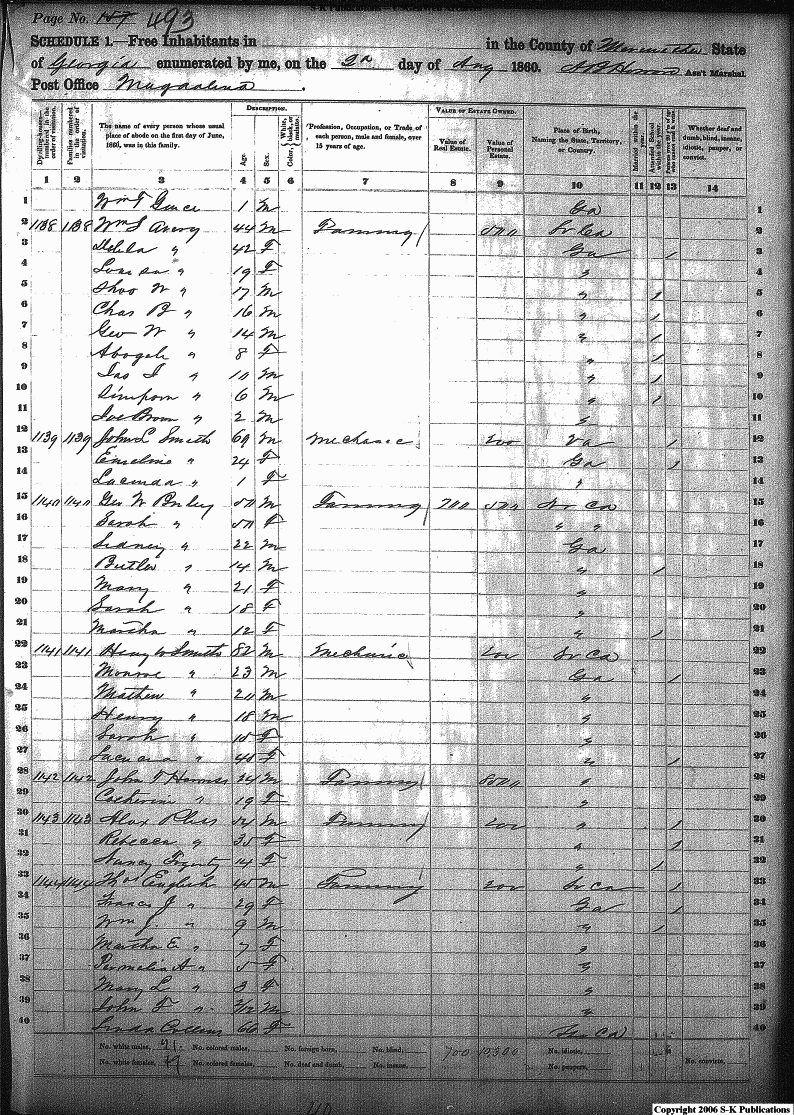 S-K Publications
Page No. 157 493
SCHEDULE 1.—Free Inhabitants in in the County of State
of Georgia enumerated by me, on the 2n day of Aug 1860. Ass't Marshal
Post Office Magdalina.
Dwelling-houses—numbered in the order of visitation.
Families numbered in the order of visitation.
The name of every person whose usual place of abode on the first day of June, 1860, was in this family.
DESCRIPTION.
Age.
Sex.
Color, {White, black, or mulatto.
Profession, Occupation, or Trade of each person, male and female, over 15 years of age.
VALUE OF ESTATE OWNED.
Value of Real Estate.
Value of Personal Estate.
Place of Birth, Naming the State, Territory, or Country.
Married within the year.
Attended School within the year.
Persons over 20 y'rs of age who cannot read & write.
Whether deaf and dumb, blind, insane, idiotic, pauper, or convict.
1 2 3 4 5 6 7 8 9 10 11 12 13 14
1 Wm T 1 M Ga 1
2 1138 1138 Wm S Avery 44 M Farming 500 So Ca 2
3 Delila " 42 F Ga 1 3
4 Louisa " 19 F " 4
5 Thos W " 17 M " 1 5
6 Chas B " 16 M " 1 6
7 Geo W " 14 M " 1 7
8 " 8 F " 1 8
9 Jas J " 10 M " 1 9
10 Simpson " 6 M " 1 10
11 Joe Brown " 2 M " 11
12 1139 1139 John L Smith 69 M Mechanic 200 Va 1 12
13 Emeline " 24 F Ga 1 13
14 Lucinda " 1 F " 14
15 1140 1140 Geo W 50 M Farming 700 500 No Ca 15
16 Sarah " 50 F " " 16
17 Sidney " 22 M Ga 17
18 Butler " 14 M " 1 18
19 Mary " 21 F " 19
20 Sarah " 18 F " 20
21 Martha " 12 F " 1 21
22 1141 1141 Henry W Smith 52 M Mechanic 200 So Ca 22
23 Monroe " 23 M Ga 1 23
24 Mathew " 20 M " 24
25 Henry " 18 M " 25
26 Sarah " 15 F " 26
27 " 45 F " 1 27
28 1142 1142 John 24 M Farming " 28
29 Catherine " 19 F " 29
30 1143 1143 Alex 54 M Farming 200 " 1 30
31 Rebecca " 35 F " 1 31
32 Nancy 14 F " 1 32
33 1144 1144 Thos English 45 M Farming 200 So Ca 1 33
34 Frances J " 29 F Ga 1 34
35 Wm J. " 9 M " 1 35
36 Martha E " 7 F " 36
37 Permelia A " 5 F " 37
38 Mary L " 3 F " 38
39 John F " M " 39
40 Linda Collins 66 F So Ca 40
No. white males, 21 No. colored males, No. foreign born, No. blind, 700 10300 No. idiotic,
No. white females, 19 No. colored females, No. deaf and dumb, No. insane, No. paupers, No. convicts,
40
Copyright 2006 S-K Publications